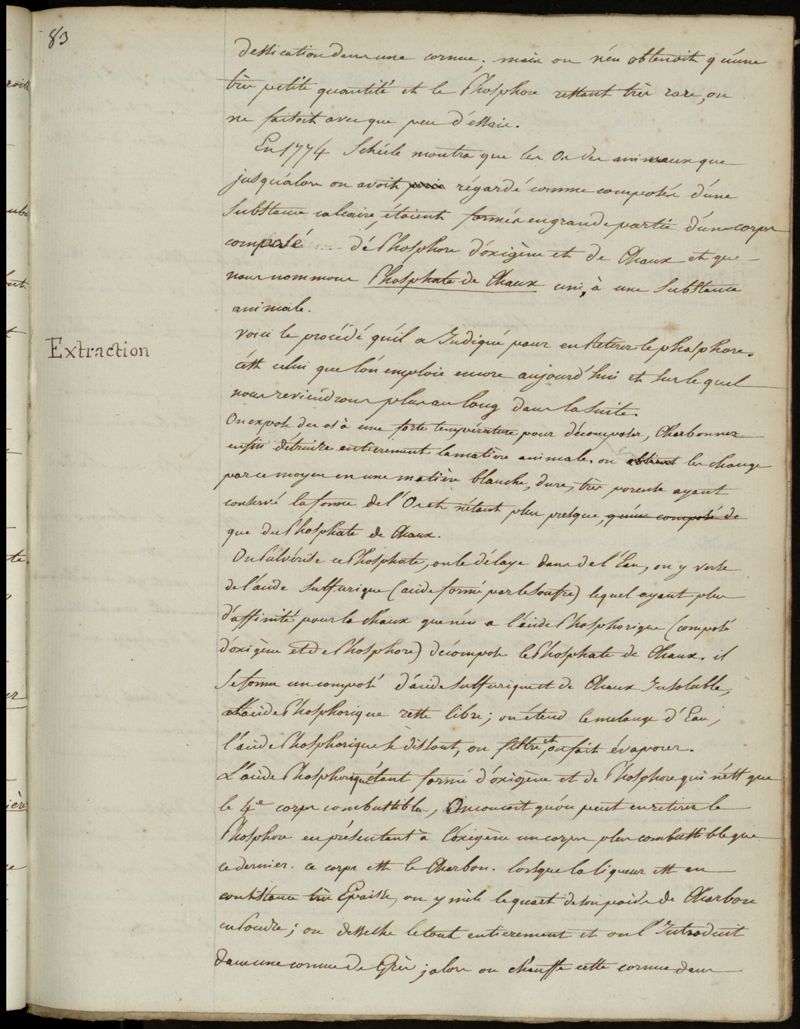 83
dessication dans une cornue; mais on n'en obtenoit qu'une
très petite quantité et le Phosphore restant très rare, on
ne faisoit avec que peu d'essais.
En 1774 Schéele montra que les Os des animaux que
jusqu'alors on avoit régardé comme composés d'une
substance calcaire, étoient formés en grande partie d'un corps
composé de Phosphore d'oxigène et de Chaux et que
nous nommons Phosphate de Chaux uni, à une substance
animale.
Extraction
Voici le procédé qu'il a Indiqué pour en Retirer le phosphore.
c'est celui que l'on emploie encore aujourd'hui et sur lequel
nous reviendrons plus au long dans la suite.
On expose des os à une forte température pour décomposer, Charbonner
enfin détruire entierement la matière animale. on les change
par ce moyen en une matière blanche, dure, très poreuse ayant
conservé la forme de l'Os et n'étant plus presque, qu'un composé de
que du Phosphate de Chaux.
On Pulvérise ce Phosphate, on le délaye dans de l'Eau, on y verse
de l'acide Sulfurique (acide formé par le soufre) lequel ayant plus
d'affinité pour la chaux que n'en a l'acide Phosphorique (composé
d'oxigène et de Phosphore) décompose le Phosphate de Chaux. il
se forme un composé d'acide sulfurique et de Chaux Insoluble,
l'acide Phosphorique reste libre; on étend le melange d'Eau,
l'acide Phosphorique se dissout, on filtre et on fait évaporer.
L'acide Phosphorique étant formé d'oxigène et de Phosphore qui n'est que
le 4e corps combustible, On concoit qu'on peut en retirer le
Phosphore en présentant à l'oxigène un corps plus combustible que
ce dernier. ce corps est le Charbon. lorsque la liqueur est en
consistance très Epaisse, on y mêle le quart de son poids de Charbon
en Poudre; on desseche le tout entierement et on l'Introduit
dans une cornue de Grès; alors on chauffe cette cornue dans